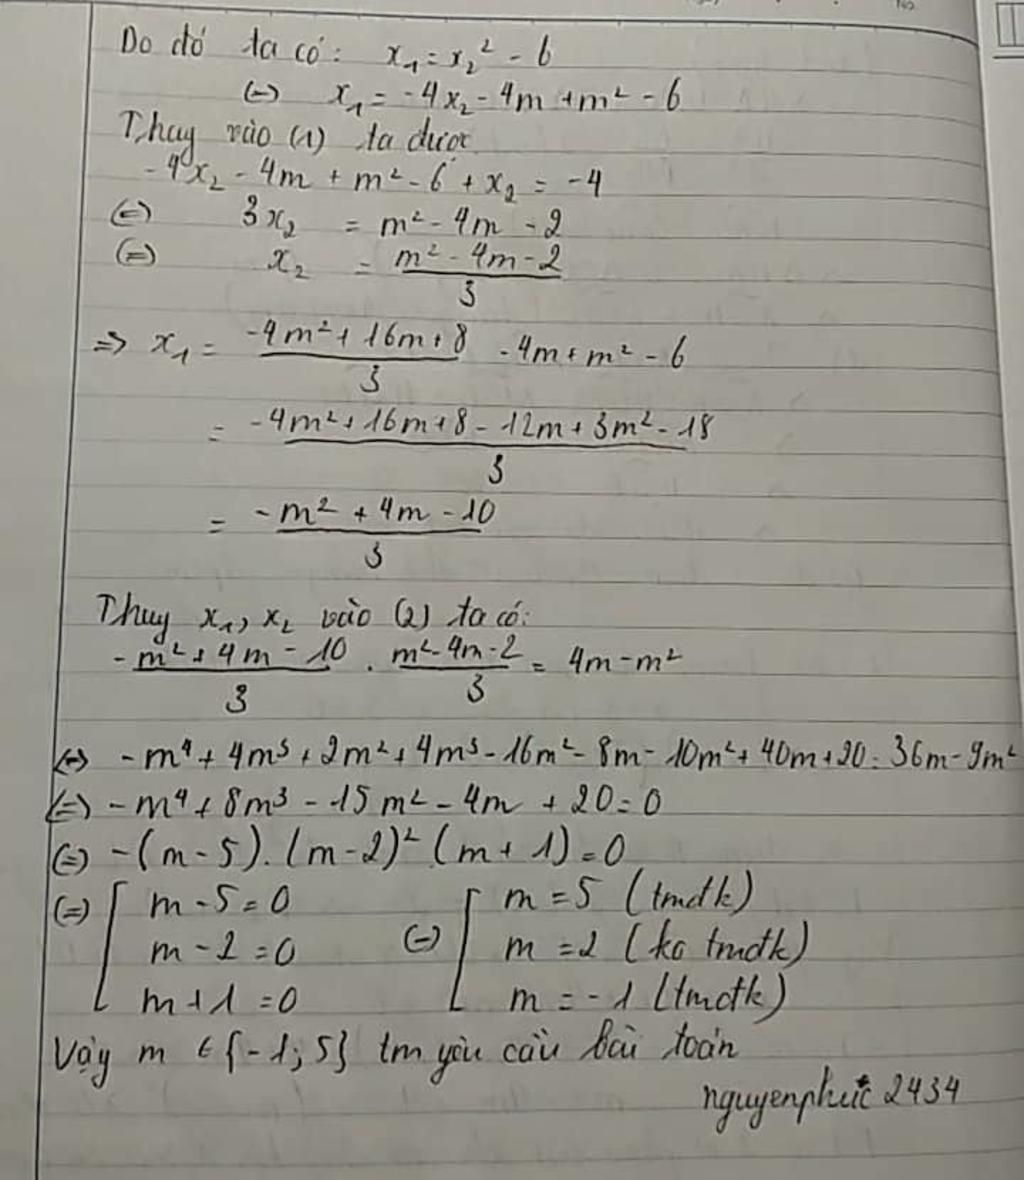 Do đó ta có: x₁ = x₂² - 6
(=) x₁ = -4x₂ - 4m + m² - 6
Thay vào (1) ta được
-4x₂ - 4m + m² - 6 + x₂ = -4
(=) 3x₂ = m² - 4m - 2
(=) x₂ = (m² - 4m - 2)/3
=> x₁ = (-4m² + 16m + 8)/3 - 4m + m² - 6
= (-4m² + 16m + 8 - 12m + 3m² - 18)/3
= (-m² + 4m - 10)/3
Thay x₁, x₂ vào (2) ta có:
(-m² + 4m - 10)/3 . (m² - 4m - 2)/3 = 4m - m²
(=) -m⁴ + 4m³ + 2m² + 4m³ - 16m² - 8m - 10m² + 40m + 20 = 36m - 9m²
(=) -m⁴ + 8m³ - 15m² - 4m + 20 = 0
(=) -(m - 5).(m - 2)² (m + 1) = 0
(=) [ m - 5 = 0 (=) [ m = 5 (tmđk)
m - 2 = 0 m = 2 (ko tmđk)
m + 1 = 0 m = -1 (tmđk)
Vậy m ∈ {-1; 5} tm yêu cầu bài toán
nguyenphuc2434